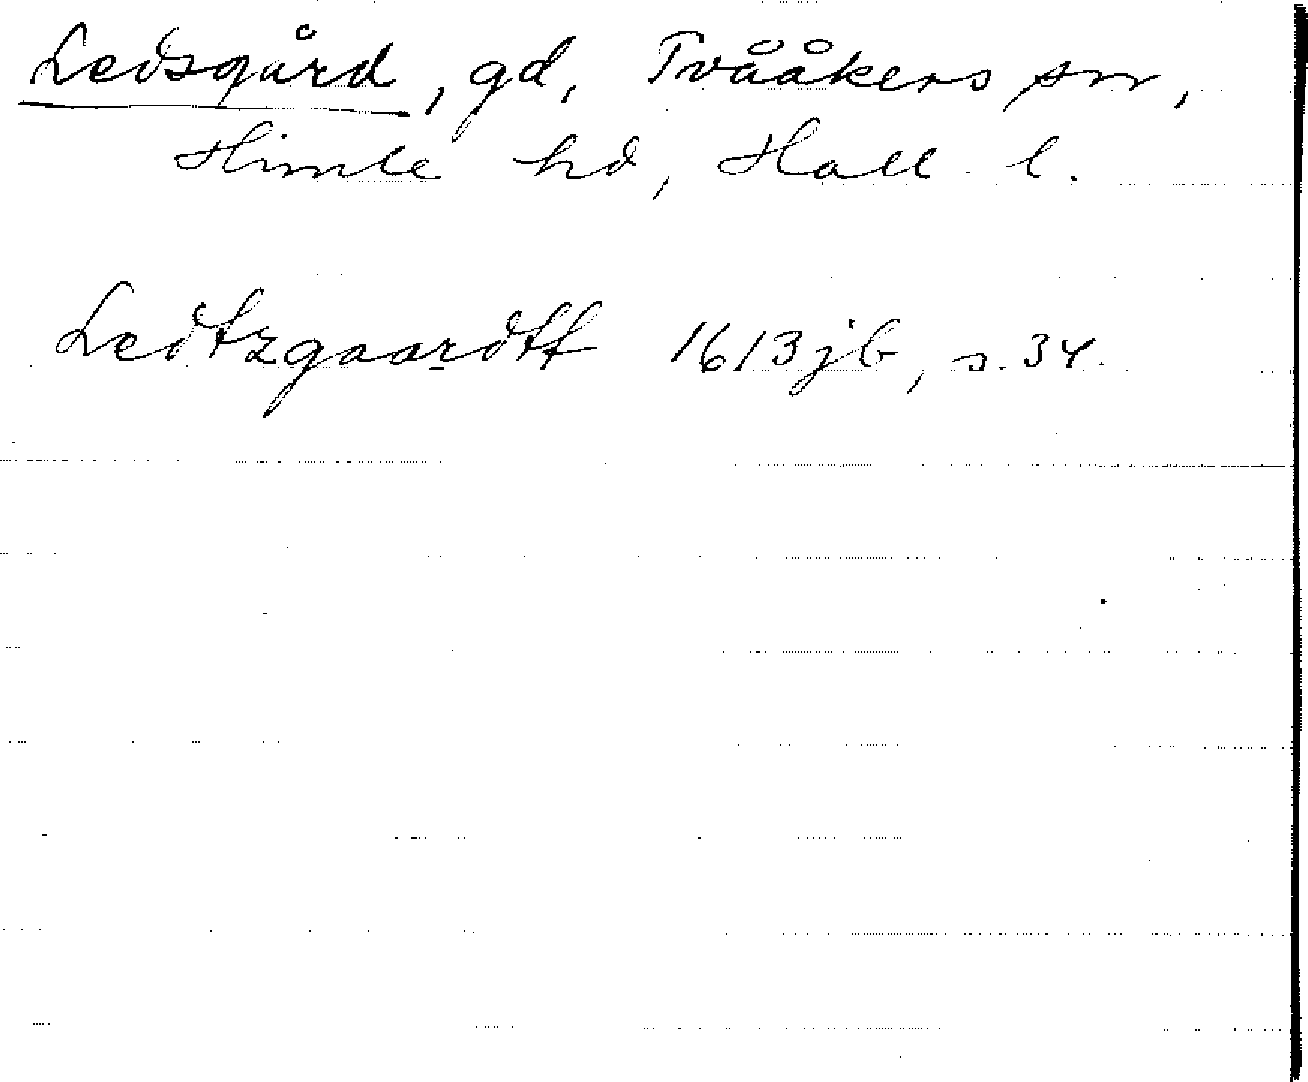 Ledsgård, gd, Tvååkers sn,
Himle hd, Hall. l.
Ledtzgaardtt 1613 jb, s. 34.